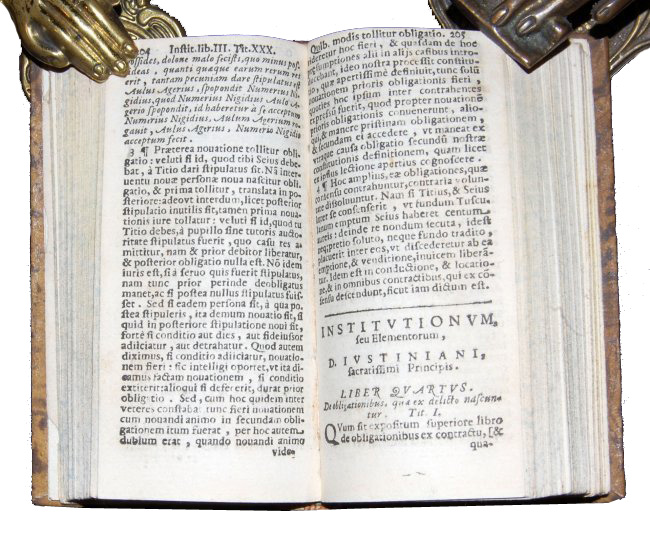 204 Instit. lib. III. Tit. XXX.
possides, dolove malo fecisti, quo minus pos
ideas, quanti quæque earum rerum res
erit, tantam pecuniam dare stipulatus est
Aulus Agerius, spopondit Numerius Ni
gidius, quod Numerius Nigidius Aulo A
gerio spopondit, id haberet ne à se acceptum
Numerius Nigidius, Aulum Agerium ro
gauit, Aulus Agerius, Numerio Nigidio
acceptum fecit.
3 ¶ Præterea nouatione tollitur obli
gatio: veluti si id, quod tibi Seius debe
bat, à Titio dari stipulatus sit. Nā inter
uentu nouæ personæ noua nascitur obli
gatio, & prima tollitur, translata in po
steriorē: adeo vt interdum, licet posterior
stipulatio inutilis sit, tamen prima noua
tionis iure tollatur: veluti si id, quod tu
Titio debes, à pupillo sine tutoris aucto
ritate stipulatus fuerit, quo casu res a
mittitur, nam & prior debitor liberatur,
& posterior obligatio nulla est. Nō idem
iuris est, si à seruo quis fuerit stipulatus,
nam tunc prior perinde obligatus
manet, ac si postea nullus stipulatus fuis
set. Sed si eadem persona sit, à qua po
stea stipuleris, ita demum nouatio sit, si
quid in posteriore stipulatione noui sit,
fortè si conditio aut dies, aut fideiussor
adiiciatur, aut detrahatur. Quod autem
diximus, si conditio adiiciatur, nouatio
nem fieri: sic intelligi oportet, vt ita di
camus factam nouationem, si conditio
extiterit: alioqui si defecerit, durat prior
obligatio. Sed, cum hoc quidem inter
veteres constabat tunc fieri nouationem
cum nouandi animo in secundam obli
gationem itum fuerat, per hoc autem
dubium erat, quando nouandi animo
vide
Quib. modis tollitur obligatio. 205
videretur hoc fieri, & quædam de hoc
præsumptiones alij in alijs casibus intro
ducebant, ideo nostra processit constitu
tio, quæ apertissimè definiuit, tunc solū
nouationem prioris obligationis fieri,
quoties hoc ipsum inter contrahentes
expressū fuerit, quod propter nouationē
prioris obligationis conuenerunt, alio
qui, & manere pristinam obligationem,
& secundam ei accedere, vt maneat ex
vtraque causa obligatio secundū nostræ
constitutionis definitionem, quam licet
ex ipsius lectione apertius cognoscere.
4 ¶ Hoc amplius, eæ obligationes, quæ
consensu contrahuntur, contraria volun
tate dissoluuntur. Nam si Titius, & Seius
inter se consenserint, vt fundum Tuscu
lanum emptum Seius haberet centum
aureis: deinde re nondum secuta, id est
neque pretio soluto, neque fundo tradito,
placuerit inter eos, vt discederetur ab ea
emptione, & venditione, inuicem liberā
tur. Idem est in conductione, & locatio
ne, & in omnibus contractibus, qui ex cō
sensu descendunt, sicut iam dictum est.
INSTITUTIONVM,
seu Elementorum,
D. IVSTINIANI,
sacratissimi Principis.
LIBER QVARTVS.
De obligationibus, quæ ex delicto nascun
tur. Tit. I.
QVum sit expositum superiore libro
de obligationibus ex contractu, [&
qua-